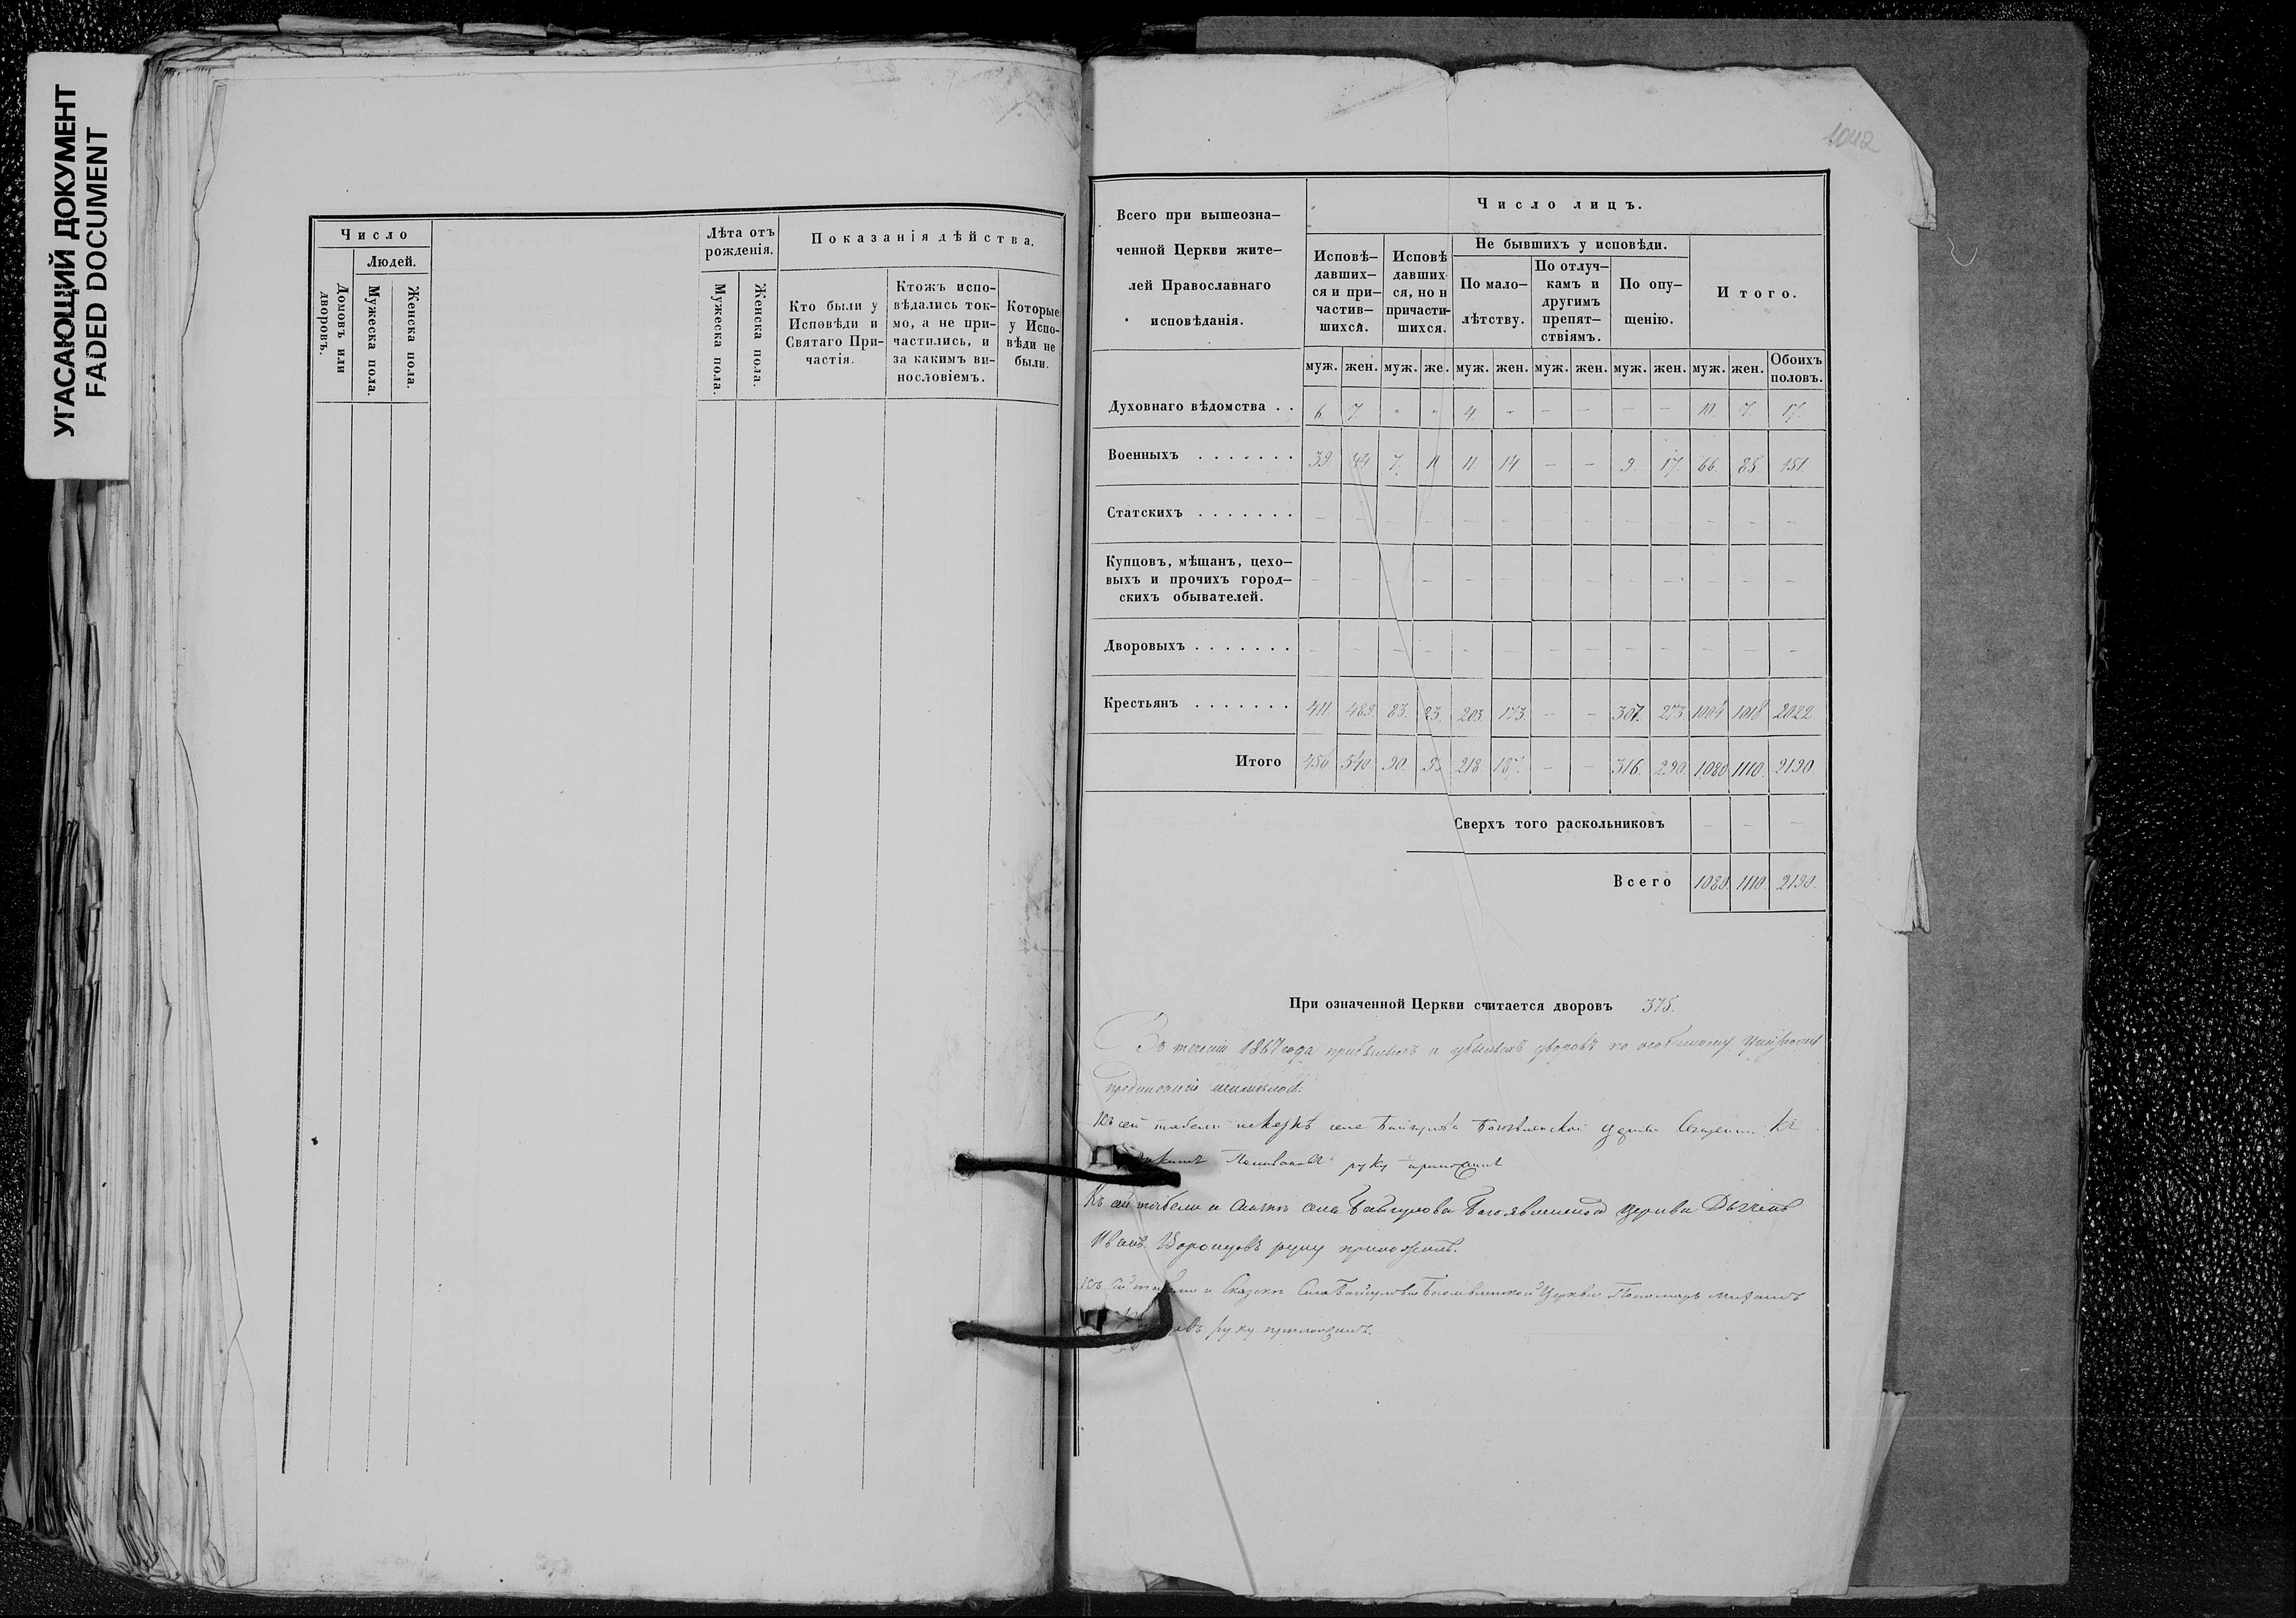 УГАСАЮЩИЙ ДОКУМЕНТ
FADED DOCUMENT
Число
Людей.
Домовъ или дворовъ.
Мужеска пола.
Женска пола.
Лѣта отъ рожденія.
Мужеска пола.
Женска пола.
Показанія дѣйства.
Кто были у
Исповѣди и
Святаго При-
частія.
Ктожъ испо-
вѣдались ток-
мо, а не при-
частились, и
за какимъ ви-
нословіемъ.
Которые
у Испо-
вѣди не
были.
1042
Всего при вышеозна-
ченной Церкви жите-
лей Православнаго
исповѣданія.
Число лицъ.
Исповѣ-
давших-
ся и при-
частив-
шихся.
Исповѣ
давших
ся, но н
причасти-
шихся.
Не бывшихъ у исповѣди.
По мало-
лѣтству.
По отлуч-
камъ и
другимъ
препят-
ствіямъ.
По опу-
щенію.
Итого.
муж. жен. муж. же. муж. жен. муж. жен. муж. жен. муж. жен. Обоихъ половъ.
Духовнаго вѣдомства . . 6. 7. " " 4. - - - - - 10. 7. 17.
Военныхъ . . . . . . . 39. 44 7. 11 11. 14 - - 9. 17. 66. 85. 151.
Статскихъ . . . . . . . - - - - - - - - - - - - -
Купцовъ, мѣщанъ, цехо-
выхъ и прочихъ город-
скихъ обывателей. - - - - - - - - - - - - -
Дворовыхъ . . . . . . . - - - - - - - - - - - - -
Крестьянъ . . . . . . . 411. 489 83. 83. 203. 173. - - 307. 273. 1004 1018 2022.
Итого 456. 540 90. 218 187. - - 316. 290 1080 1110. 2190.
Сверхъ того раскольниковъ - - -
Всего 1080. 1110. 2190.
При означенной Церкви считается дворовъ 375.
Въ теченіи 1867 года и дворовъ по
Къ сей табели села Церкви
руку приложилъ
Къ сей табели и села Байгулова Богоявленской церкви Дьячекъ
Иванъ Воронцовъ руку приложилъ.
Къ сей табели и Сказкѣ Села Байгулова Богоявленской Церкви Пономарь Михаилъ
руку приложилъ.